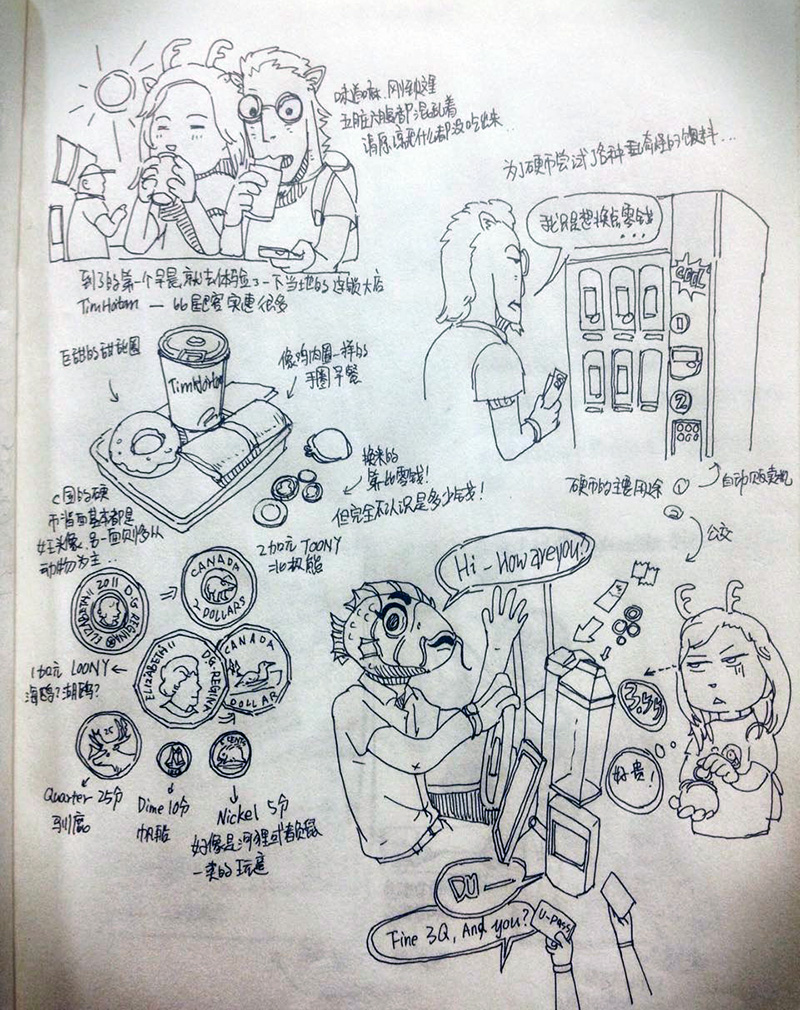 味道嘛,刚到这里
五脏六腑都混乱着
请原谅我什么都没吃出来...
到了的第一个早晨,就去体验了一下当地的连锁大店
TimHorton — bb星巴客实惠很多
为了硬币尝试了各种更奇怪的饮料...
我只是想换点零钱
...
COOL
1
2
巨甜的甜甜圈
TimHorton
像鸡肉圈一样的
手圈早餐
换来的
第一比零钱!
但完全不认识是多少钱!
硬币的主要用途 ①
自动贩卖机
②
公交
C国的硬
币背面基本都是
女王头像,另一面则多以
动物为主..
2加元 TOONY
北极熊
ELIZABETH II 2011 D.G REGINA
CANADA
2 DOLLARS
1加元 LOONY
海鸥?湖鸥?
ELIZABETH II D.G. REGINA
CANADA
DOLLAR
25
5 CENTS
Quarter 25分
驯鹿
Dime 10分
帆船
Nickel 5分
好像是河狸或者负鼠
一类的玩意
Hi-How are you?
3.55
好贵!
DU—
Fine 3Q, And you?
U-Pass